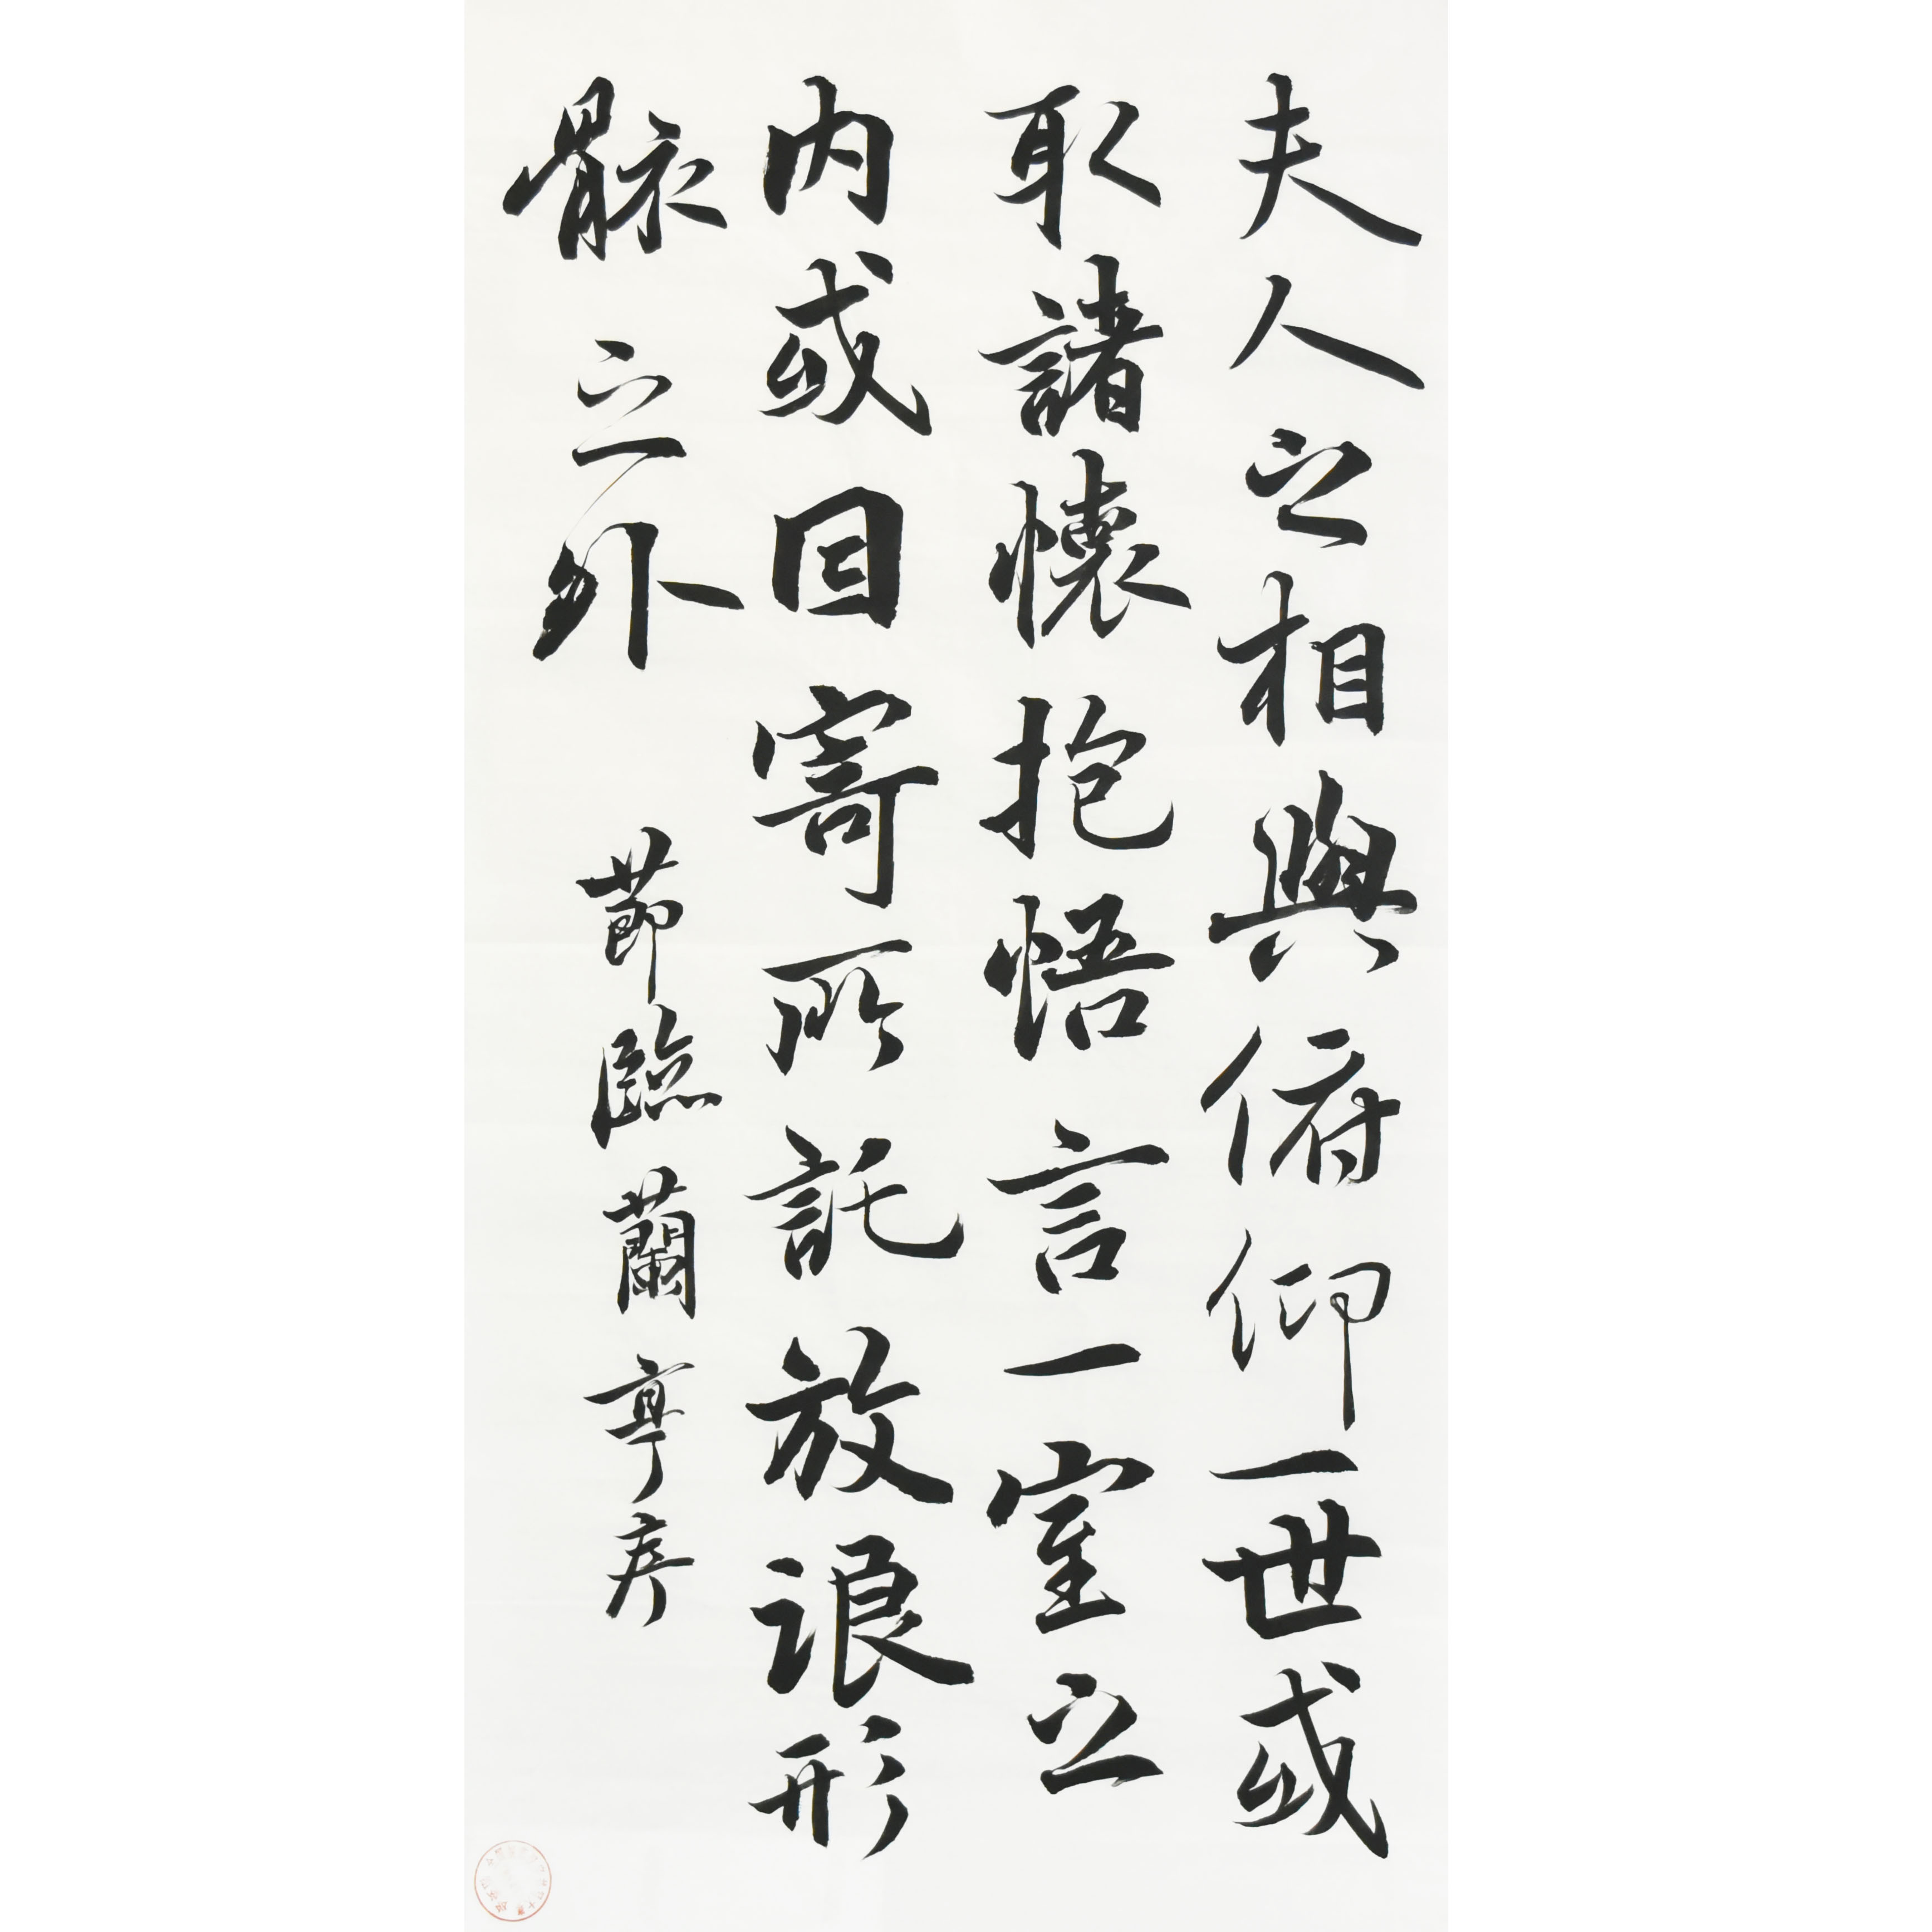 夫人之相與俯仰一世或
取諸懷抱悟言一室之
内或因寄所託放浪形
骸之外 節臨蘭亭序